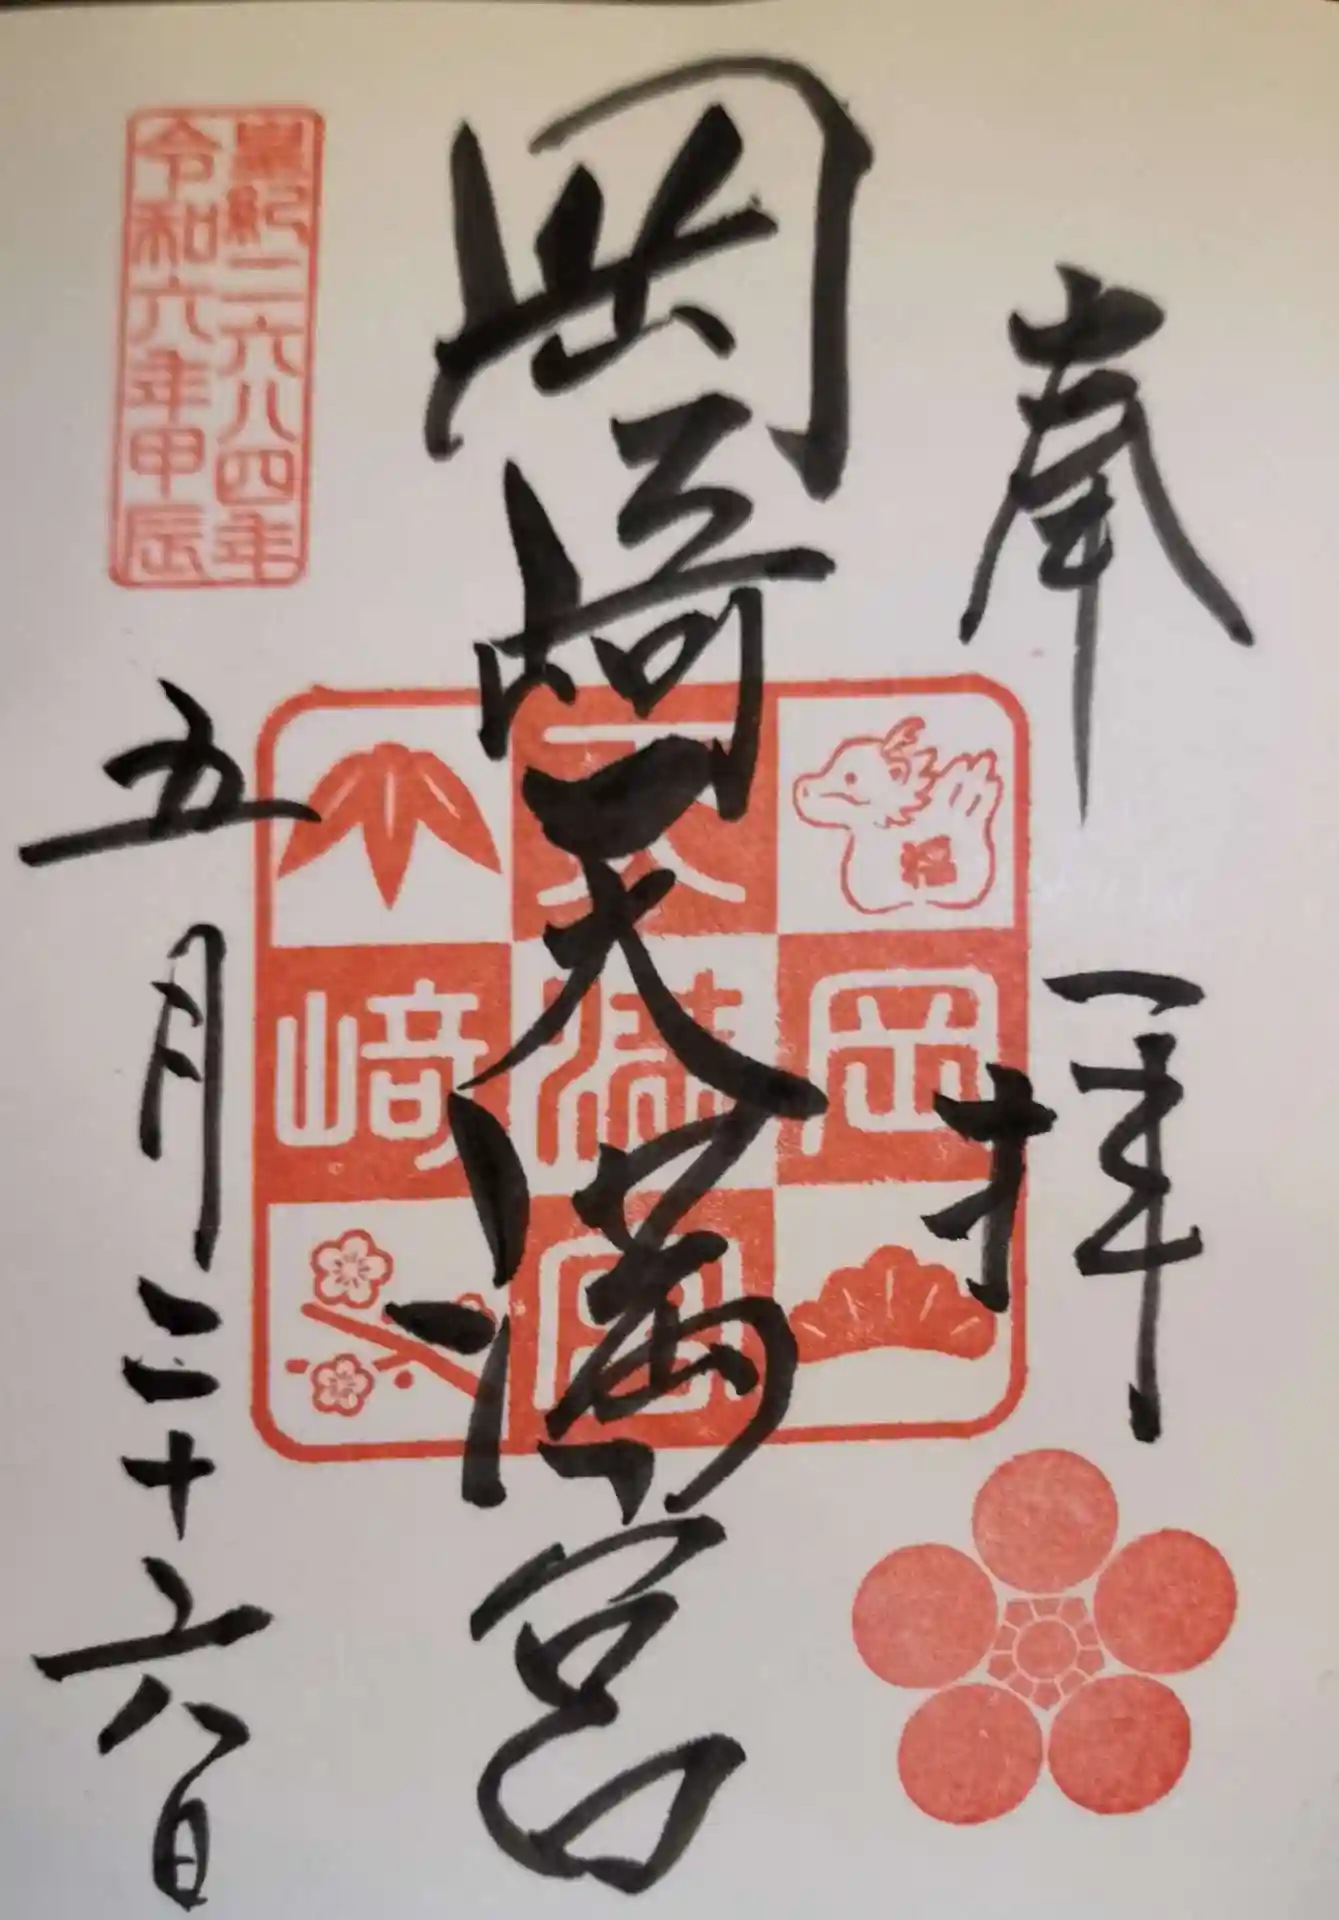 奉拝
岡﨑天満宮
皇紀二六八四年
令和六年甲辰
五月二十六日
福
岡
天
満
宮
﨑